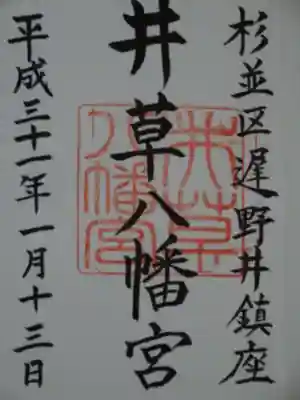 杉並区遅野井鎮座
井草八幡宮
平成三十一年一月十三日
井草
八幡宮